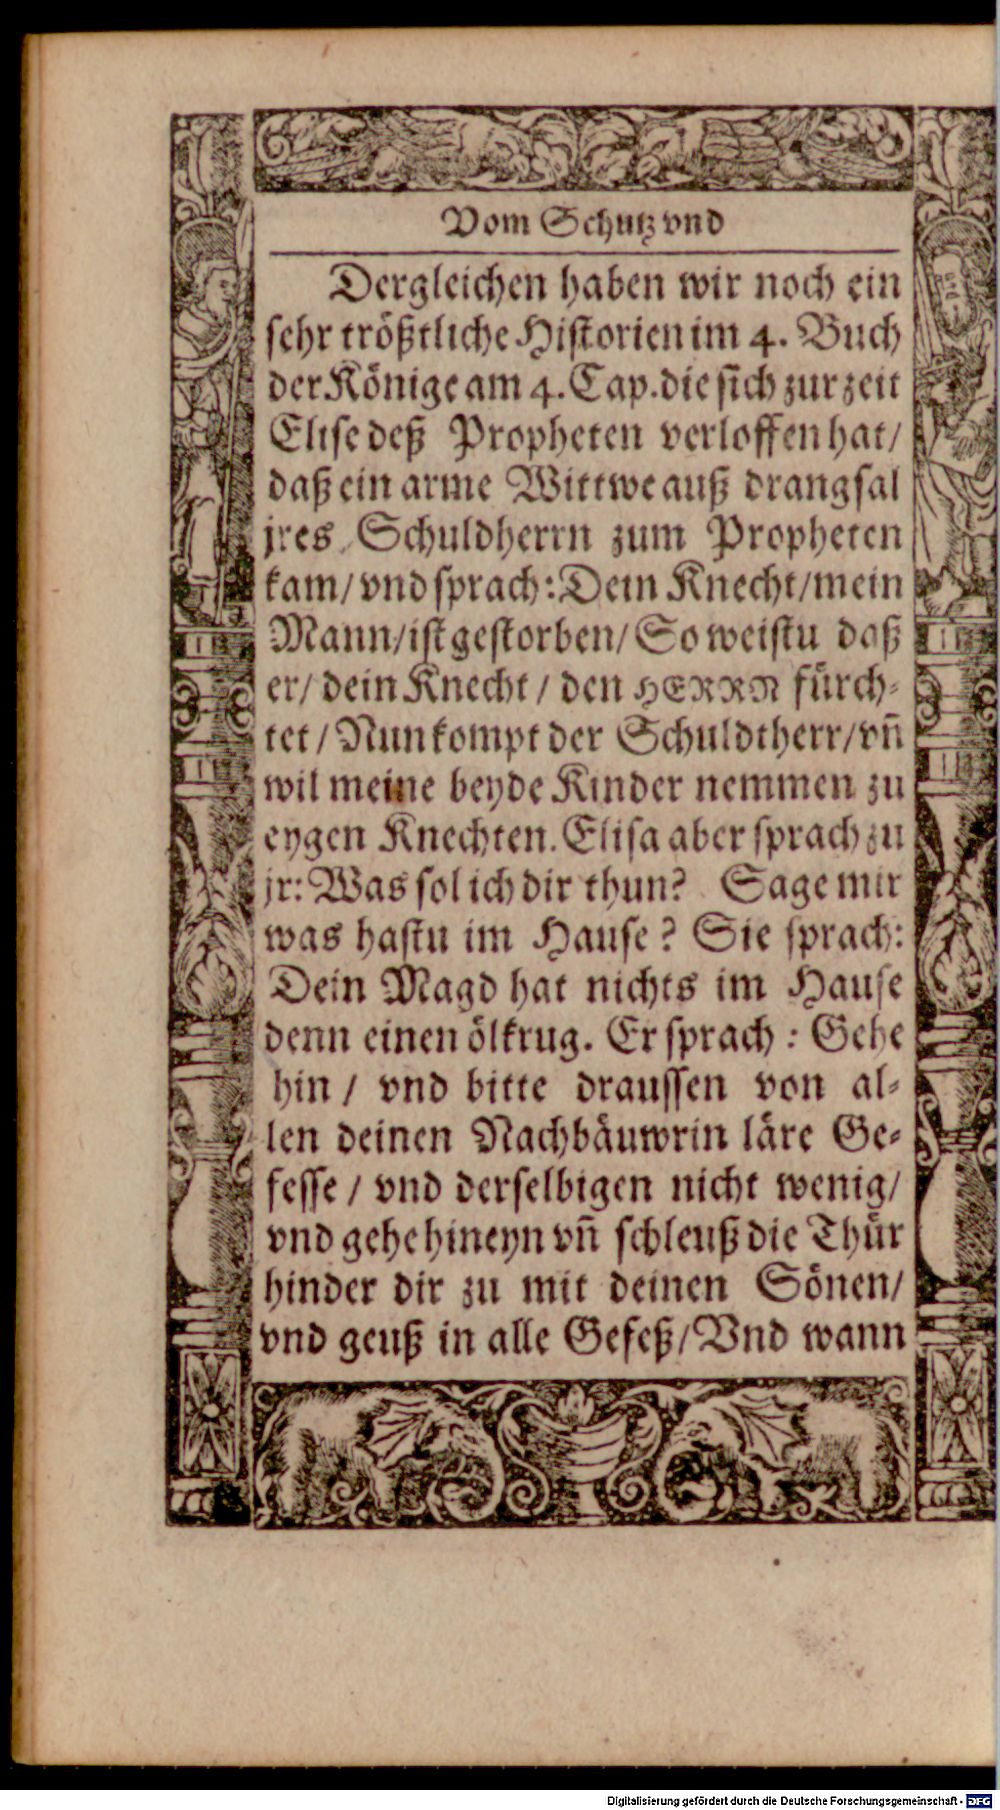 Vom Schutz vnd
Dergleichen haben wir noch ein
sehr trößtliche Historien im 4. Buch
der Könige am 4. Cap. die sich zur zeit
Elise deß Propheten verloffen hat/
daß ein arme Wittwe auß drangsal
jres Schuldherrn zum Propheten
kam/ vnd sprach: Dein Knecht/ mein
Mann/ ist gestorben/ So weistu daß
er/ dein Knecht / den HERRN fürch-
tet / Nun kompt der Schuldtherr/ vñ
wil meine beyde Kinder nemmen zu
eygen Knechten. Elisa aber sprach zu
jr: Was sol ich dir thun? Sage mir
was hastu im Hause? Sie sprach:
Dein Magd hat nichts im Hause
denn einen ölkrug. Er sprach : Gehe
hin / vnd bitte draussen von al-
len deinen Nachbäuwrin läre Ge-
fesse / vnd derselbigen nicht wenig/
vnd gehe hineyn vñ schleuß die Thür
hinder dir zu mit deinen Sönen/
vnd geuß in alle Gefeß/ Vnd wann
Digitalisierung gefördert durch die Deutsche Forschungsgemeinschaft - DFG